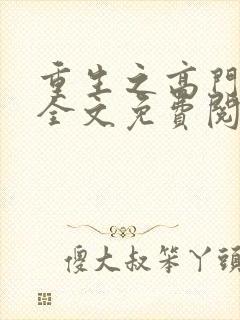 重生之高門
全文免費閱
傻大叔笨丫頭